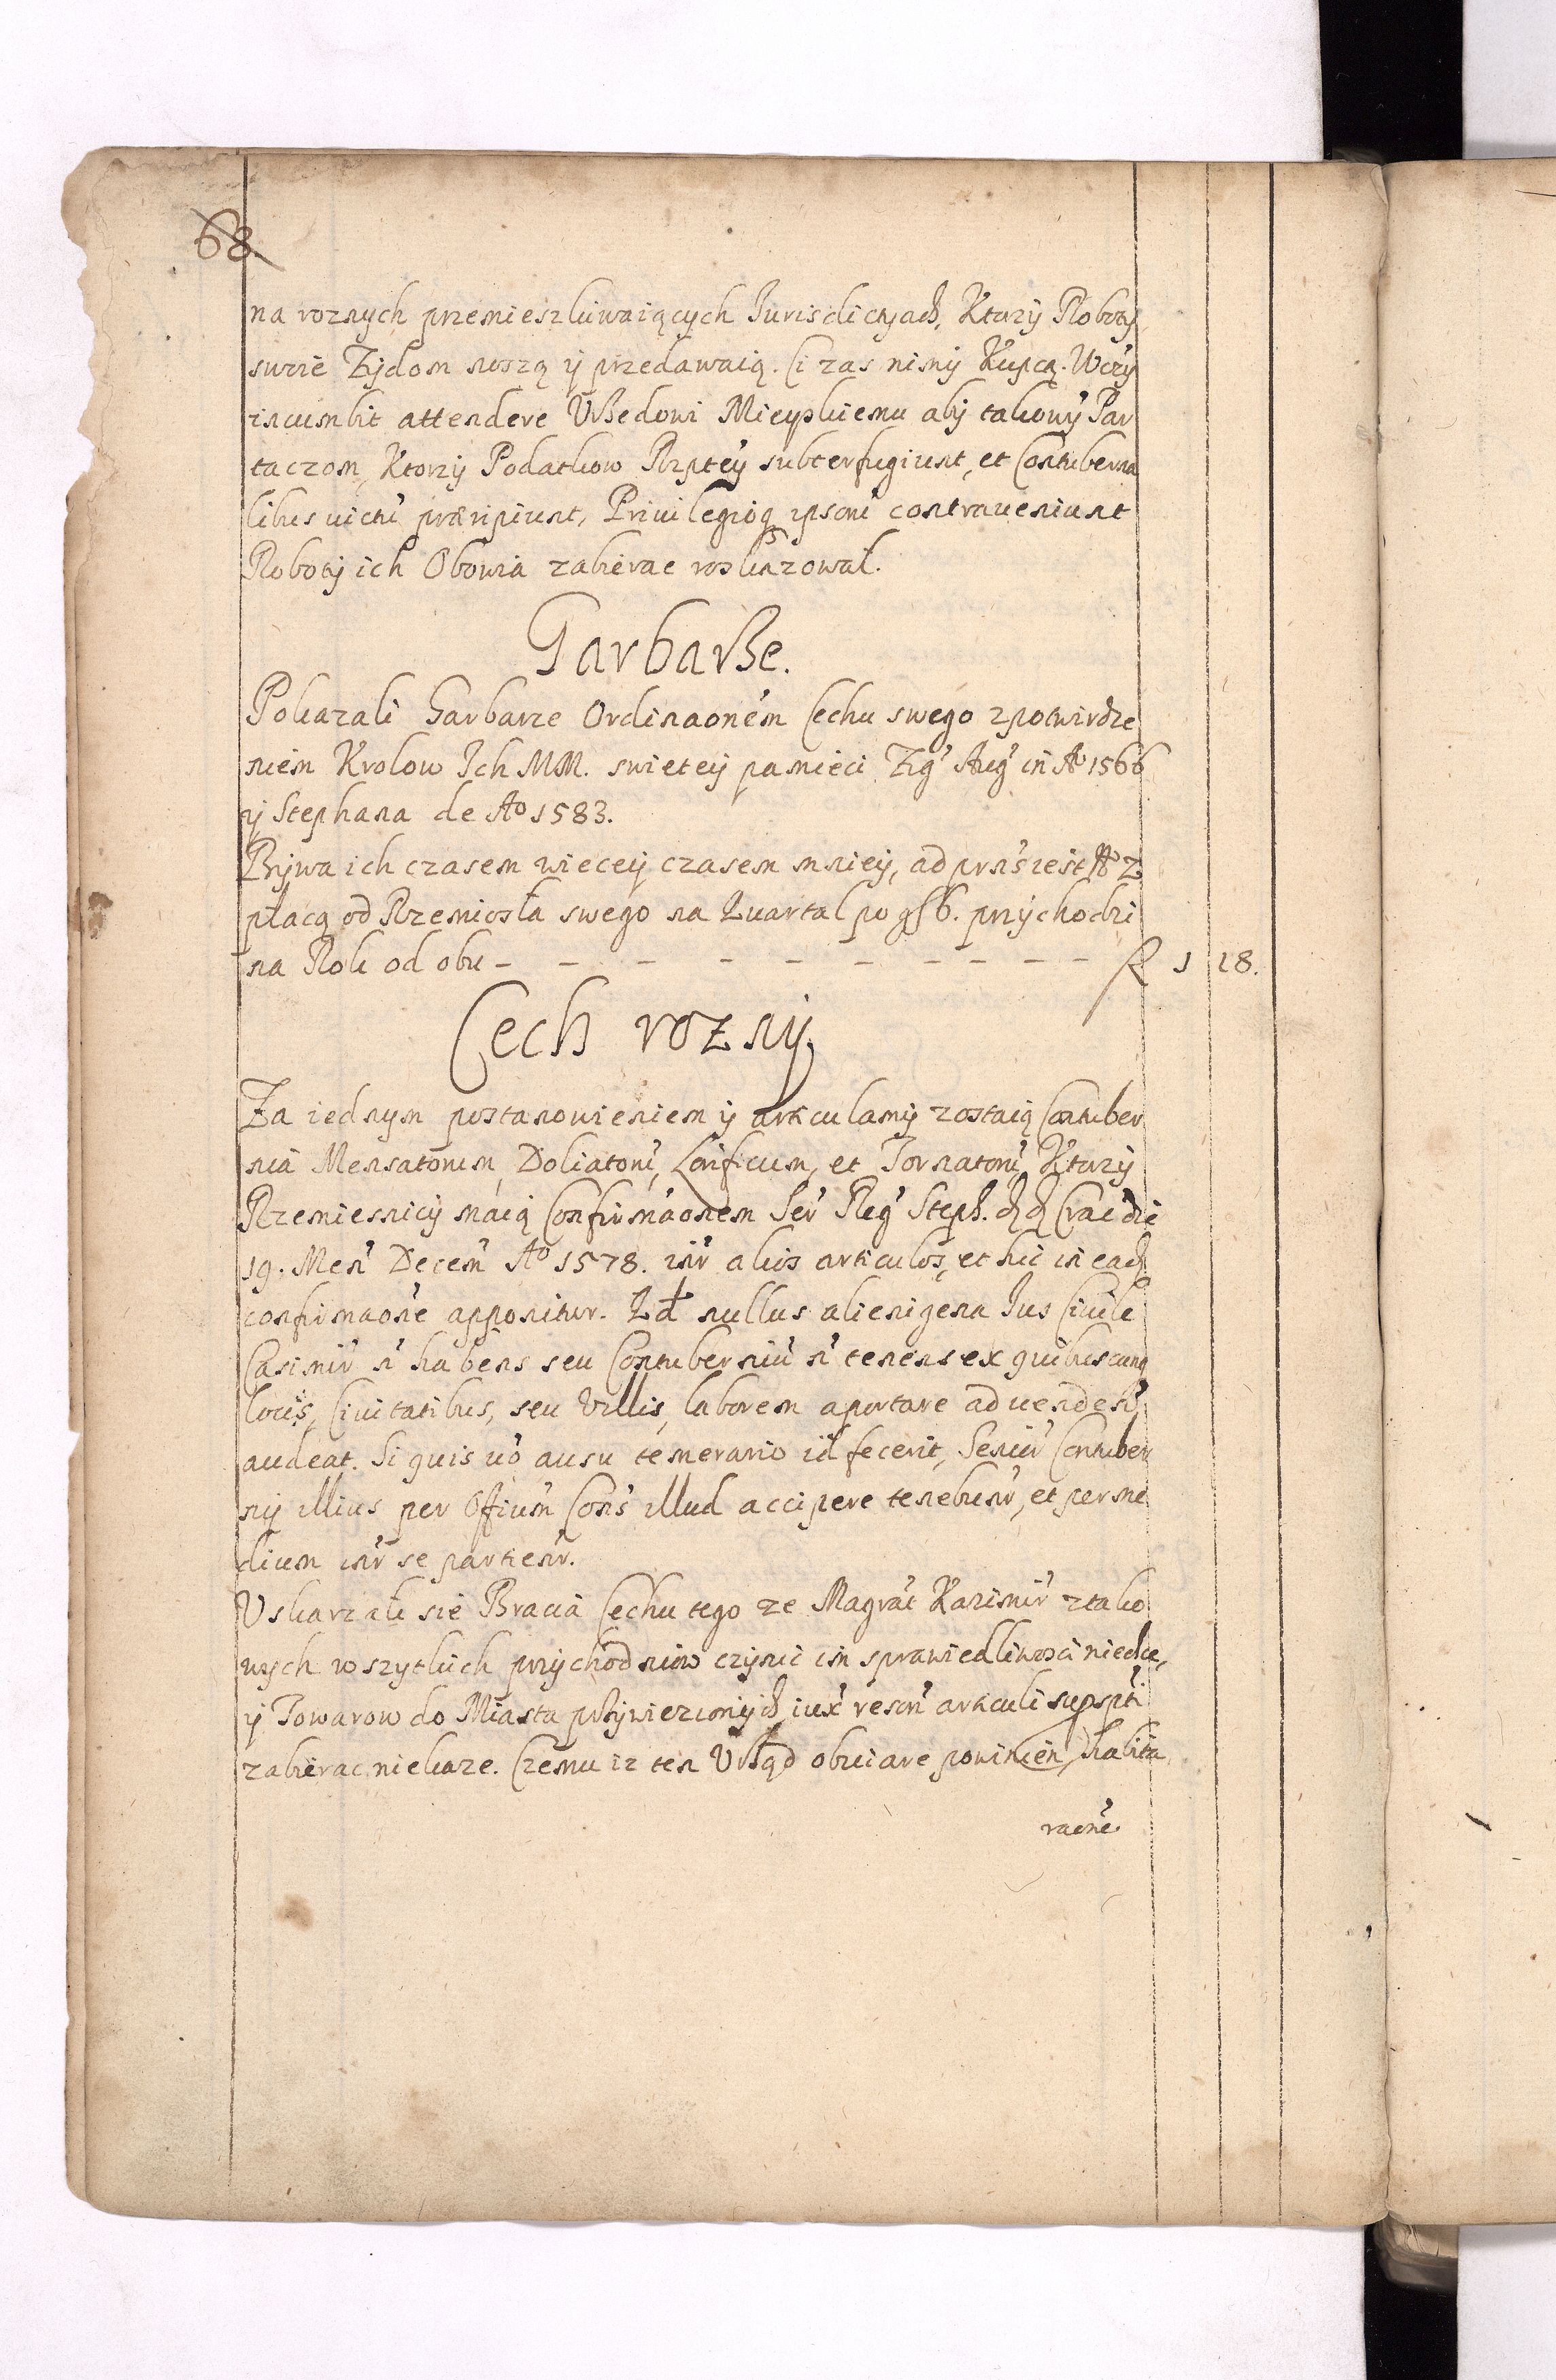 68.
na roznych przemieszkiwaiących Jurisdictyach, Ktorzy Roboty
swoie Zydom noszą y przedawaią. Ci zas nimy Kupczą. W czy
incumbit attendere Urzędowi Mieyskiemu aby takowy Par
taczom, Ktorzy Podatkow Rzptey subterfugiunt, et Contuberna
libus victũ præripiunt, Privilegioq ipsorũ contraveniunt
Roboty ich Obowia zabierac roskazował.
Garbarze.
Pokazali Garbarze Ordinaonem Cechu swego z potwirdze
niem Krolow Ich MM. swietey pamieci Zig' Aug' in Ao 1566
y Stephana de Ao 1583.
Bywa ich czasem wiecey czasem mniey, ad prns iest No 2
płacą od Rzemiosła swego na Kwartał po gr 6. przychodzi
na Rok od obu - - - - - - - - - - f 1 18.
Cech rozny.
Za iednym postanowieniem y articulamy zostaią Contuber
nia Mensatorum, Doliatorũ, Lorificum, et Tornatorũ, Ktorzy
Rzemiesnicy maią Confirmaonem Ser' Reg' Steph. dd Crac die
19. Men' Decem' Ao 1578. inr' alios articulos, et hic in ead
confirmaone apponitur. Qd nullus alienigena Jus Civile
Casimir' n' habens seu Contuberniũ n' tenens ex quibuscunq
locis, Civitatibus, seu Villis, laborem aportare ad vendend'
audeat. Si quis vo ausu temerario id fecerit, Senior' Contuber
nij illius per Offium Cons' illud accipere tenebunr', et per me
dium inr' se partienr'.
Uskarzali się Bracia Cechu tego ze Magrat' Kazimir' z tako
wych wszytkich przychodniow czynic im sprawiedliwosci niechce,
y Towarow do Miasta przywiezionych, iux' tenorẽ articuli suprspti
zabierac niekaze. Czemu iz ten Urząd obviare powinien, habita
raone